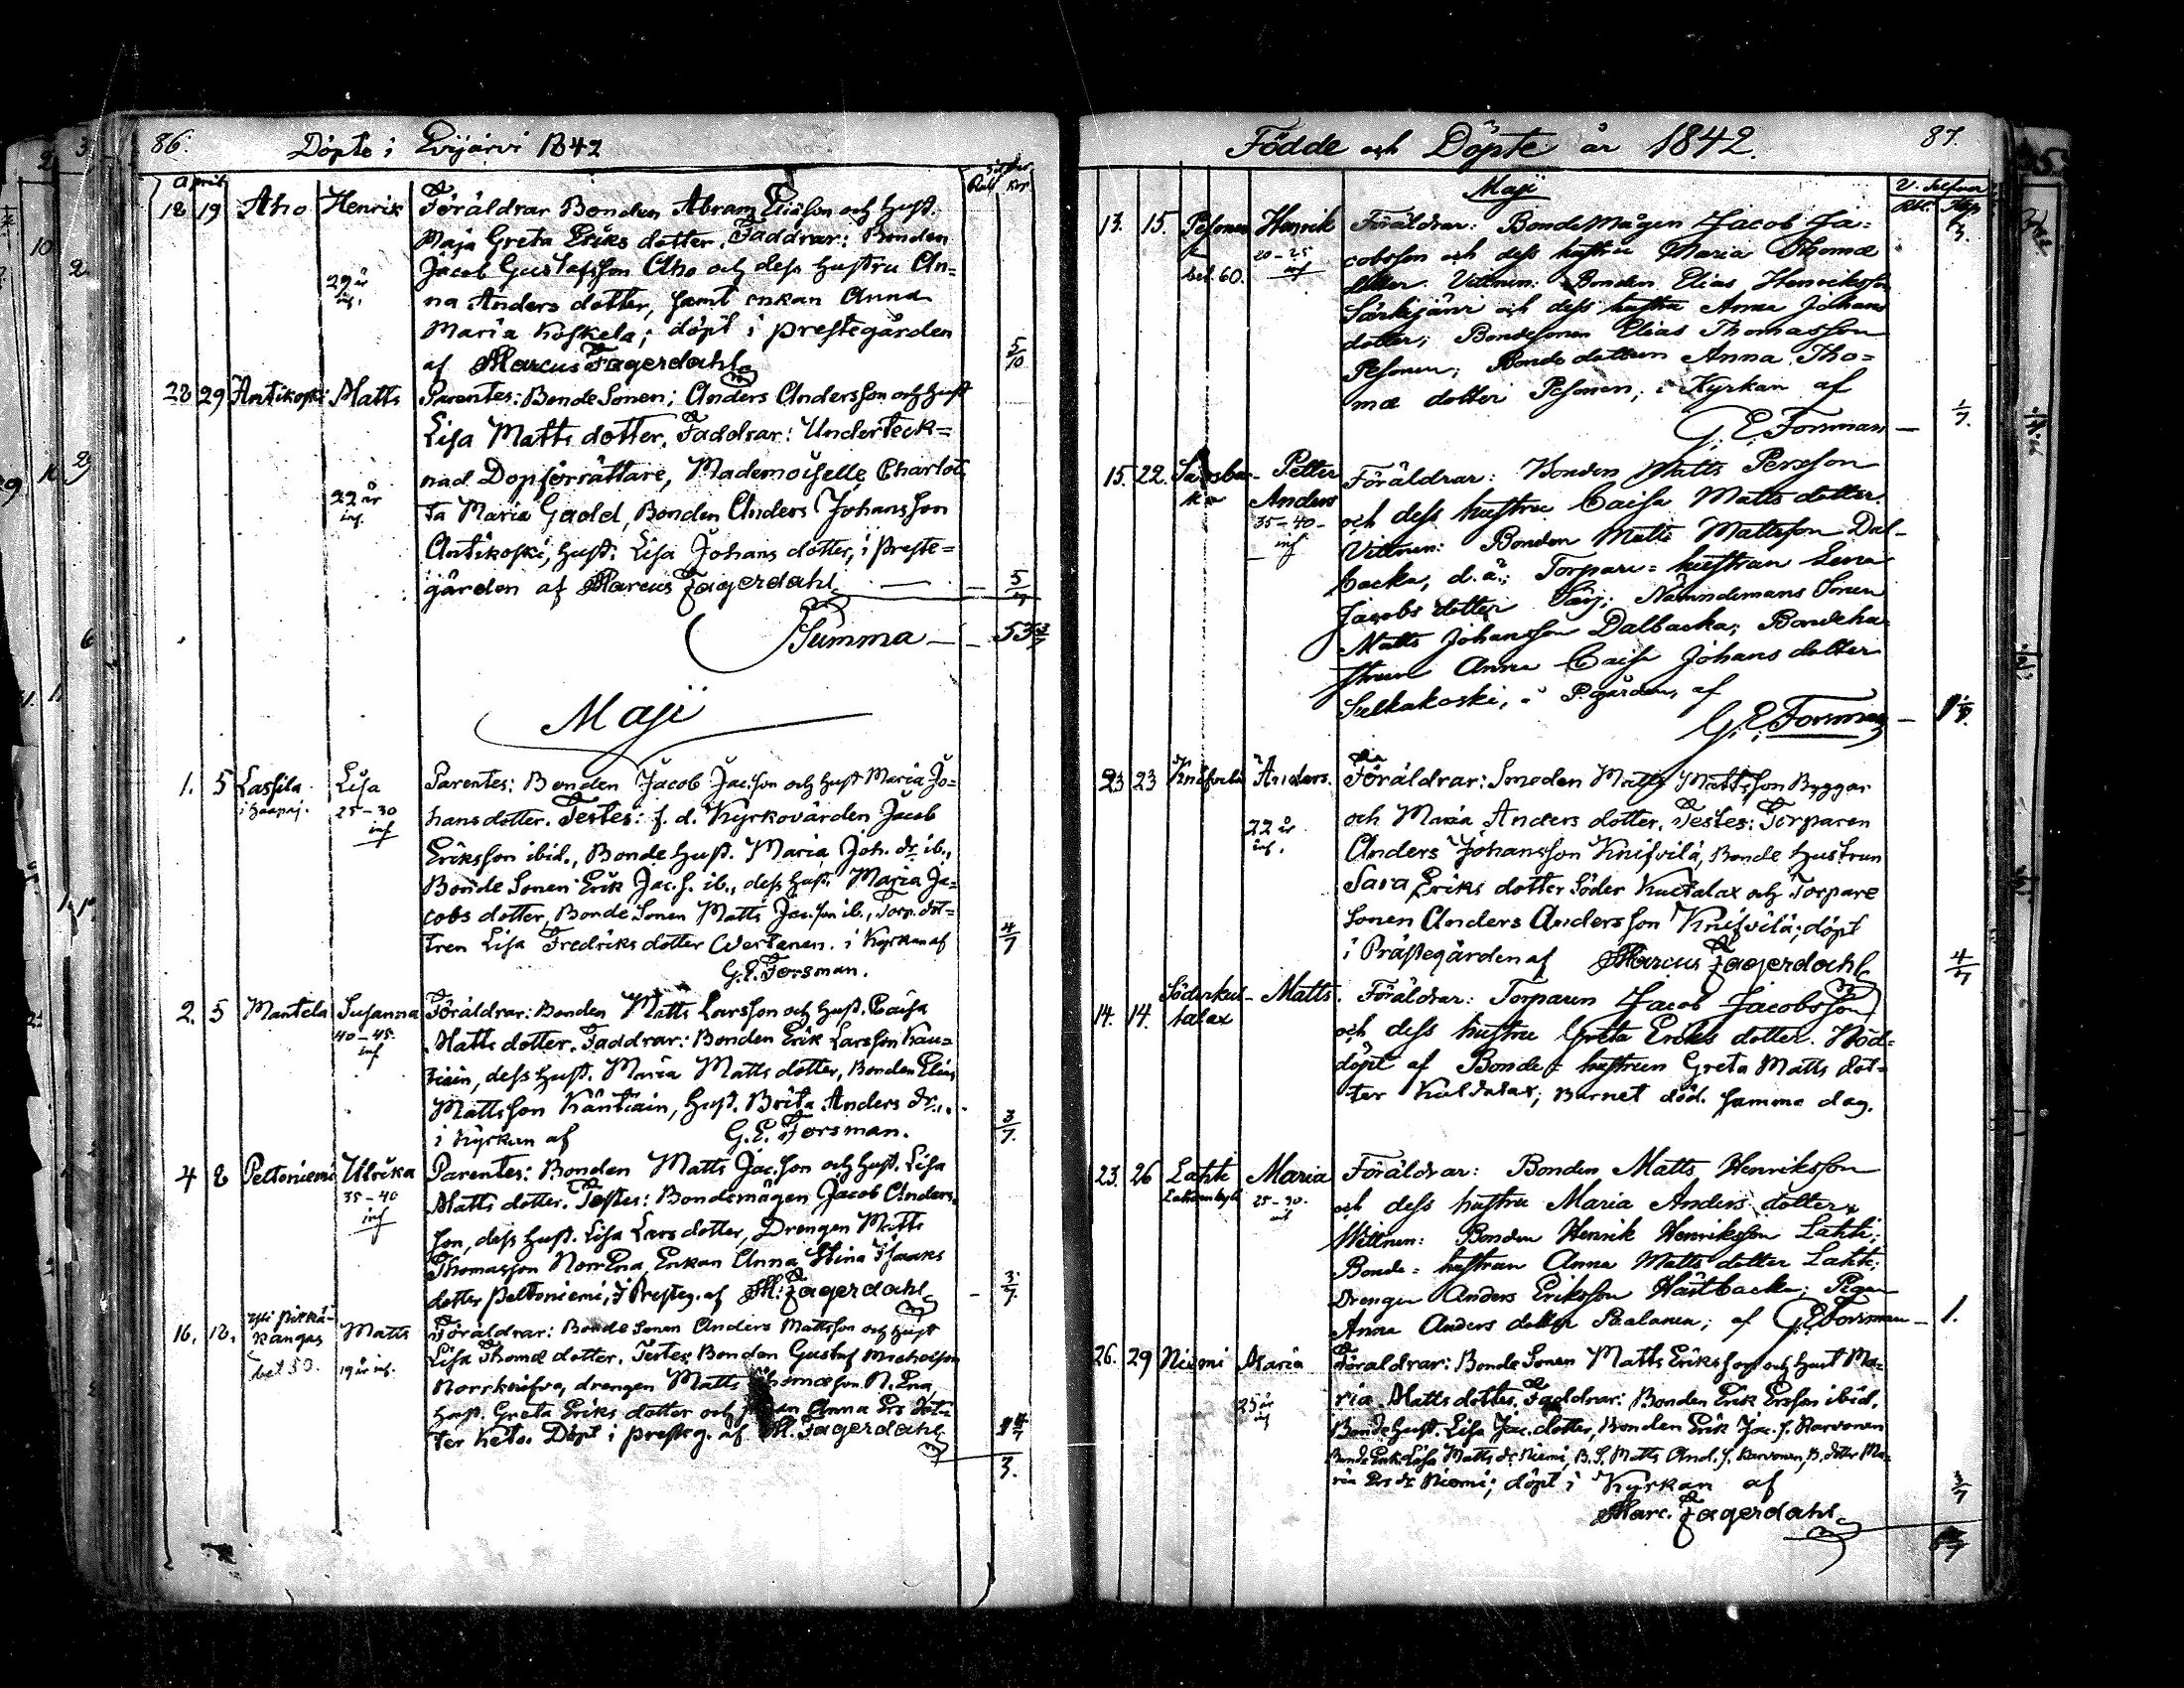 86.
Döpte i Evijärvi 1842
April
18 19 Aho Henrik Föräldrar Bonden Abram Eliäson och Hust.
Maja Greta Eriks dotter. Faddrar: Bonden
Jacob Gustafsson Aho och dess hustru An=
29 år
na Anders dotter, samt enkan Anna
Maria Koskela; döpt i prestegården
af Marcus Fagerdahl
5/10
28 29 Antikoski Matts Parentes: Bonde Sonen; Anders Andersson och hust
Lisa Matts dotter. Faddrar: Underteck=
nad Dopförrättare, Mademoiselle Charlot
22 år
inf.
ta Maria Gadd, Bonden Anders Johansson
Antikoski, hust. Lisa Johans dotter, i preste=
gården af Marcus Fagerdahl
5/7
Summa
Maji
1. 5 Lassila Lisa Parentes: Bonden Jacob Jac.son och hust Maria Jo=
25-30
inf
hans dotter. Testes: f. d. Kyrkovärden Jacob
Eriksson ibid., Bonde Hust. Maria Joh. dr. ib.,
Bonde Sonen Erik Jac. s. ib., dess hust. Maria Ja=
cobs dotter, Bonde Sonen Matts Jac.son ib., Torp. dot=
tren Lisa Fredriks dotter Wertanen. i Kyrkan af
4/7
G.E. Forsman.
2. 5 Mantela Susanna Föräldrar: Bonden Matts Larsson och hust. Caisa
40-45
inf
Matts dotter. Faddrar: Bonden Erik Larsson Kän=
tiäin, dess hust. Maria Matts dotter, Bonden Elias
Mattsson Käntiäin, hust. Brita Anders dr.,
i Kyrkan af G.E. Forsman.
3/7.
4 8 Peltoniemi Ulrika Parentes: Bonden Matts Jac.son och hust. Lisa
35-40
inf
Matts dotter. Testes: Bondemågen Jacob Anders=
son, dess hust. Lisa Lars dotter, Drengen Matts
Thomasson NorrEna, Enkan Anna Stina Isaaks
dotter peltoniemi, i Presteg. af M. Fagerdahl
3/7.
16. 18. kangas Matts Föräldrar: Bonde Sonen Anders Mattsson och hust
bet 50. 19 år inf.
Lisa Thomæ dotter. Testes Bonden Gustaf
drengen Matts Thomæson N. Ena,
hust. Greta Eriks dotter och Anna Ers dot=
ter Keto. Döpt i presteg. af M. Fagerdahl
3.
Födde och Döpte år 1842.
87.
Maji
13. 15. Pesonen Henrik Föräldrar: BondeMågen Jacob Ja=
20-25
inf
bet. 60.
cobsson och dess hustru Maria Thomæ
dotter. Vittnen: Bonden Elias Henriksson
Särkijärvi och dess hustru Anna Johans
dotter; Bondesonen Elias Thomasson
Pesonen; Bonde dottren Anna Tho=
mæ dotter Pesonen; i Kyrkan af
G. E. Forsman
15. 22. Petter Anders Föräldrar: Bonden Matts Persson
35-40-
inf
och dess hustru Caisa Matts dotter.
Vittnen: Bonden Matts Mattsson Dal-
backa, d.ä.; Torpare=hustrun Lena
Jacobs dotter Särs; Nämndemans Sonen
Matts Johansson Dalbacka; Bondehu
strun Anna Caisa Johans dotter
Sulkakoski, i P.gården, af
G. E. Forsman
23 23 Knifvilä Anders. Föräldrar: Smeden Matts Mattsson Byggar
och Maria Anders dotter. Testes: Torparen
22 år
inf.
Anders Johansson Knifvilä, Bonde Hustrun
Sara Eriks dotter Söder Kuctalax och Torpare
Sonen Anders Andersson Knifvilä; döpt
i Prästegården af Marcus Fagerdahl
4/7
14. 14. Söderkul-
talax Matts. Föräldrar: Torparen Jacob Jacobsson
och dess hustru Greta Eriks dotter. Nöd=
döpt af Bonde=hustrun Greta Matts dot=
ter Kultalax; Barnet död samma dag.
23. 26 Lahti Maria Föräldrar: Bonden Matts Henriksson
25-30.
inf
och dess hustru Maria Anders dotter.
Wittnen: Bonden Henrik Henriksson Lahti;
Bonde=hustrun Anna Matts dotter Lahti;
Drengen Anders Eriksson Hästbacka; Pigan
Anna Anders dotter Paalanen; af G.E. Forsman
1.
26. 29 Niemi Maria Föräldrar: Bonde Sonen Matts Eriksson och hust Ma=
25 år
inf
ria Matts dotter. Faddrar: Bonden Erik Ersson ibid.
Bonde hust. Lisa Jac. dotter, Bonden Erik Jac. s. Karvonen
Bonde Enk. Lisa Matts dr. Niemi, B. S. Matts And. s. Karvonen, B. dotter Ma=
ria Ers dr. Niemi; döpt i Kyrkan af
Marc. Fagerdahl
3/7